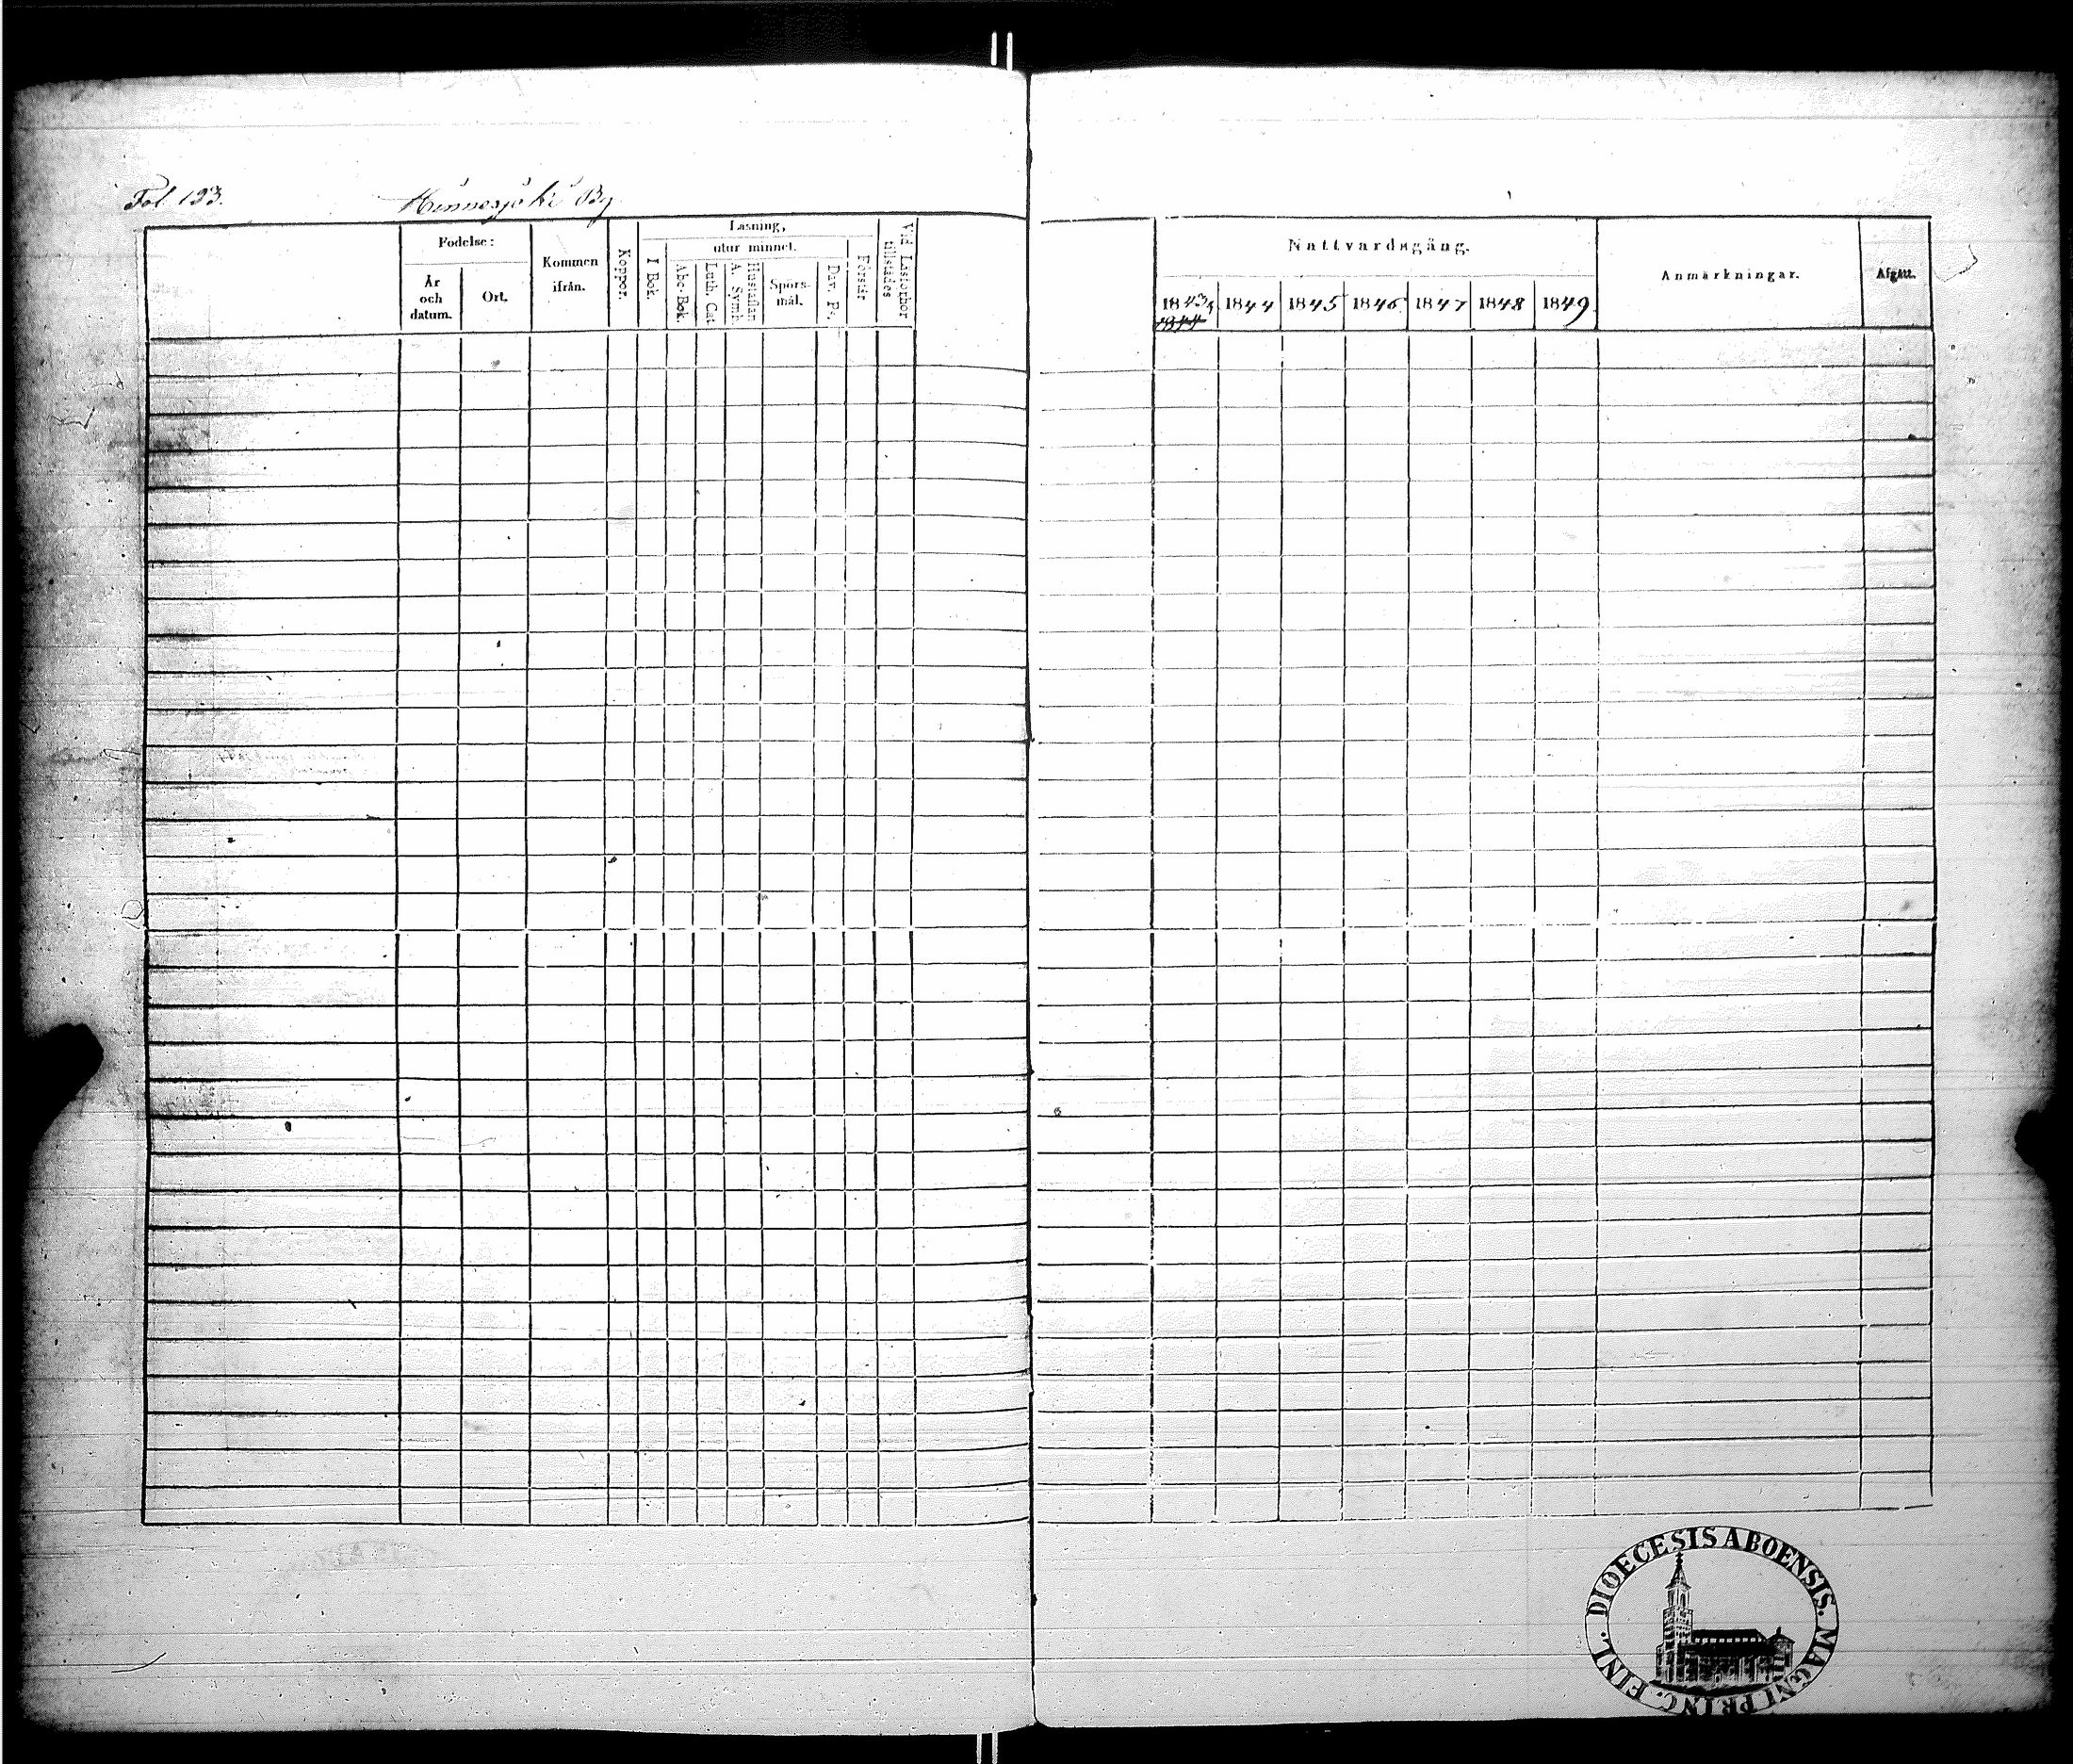 Fol. 193. Hinnerjoki By
Födelse:
År
och
datum.
Ort.
Kommen
ifrån.
Koppor.
Läsning,
I Bok.
utur minnet.
Abc-Bok.
Luth. Cat
Hustaflan
A. Symb.
Spörs-
mål.
Dav. Ps.
Förstår
Vid Läsförhör
tillstädes
Nattvardsgång.
1843
1844
1844
1845
1846
1847
1848
1849
Anmärkningar.
Afgått.
DIOECESIS ABOENSIS. MAGNI PRINC. FINL.